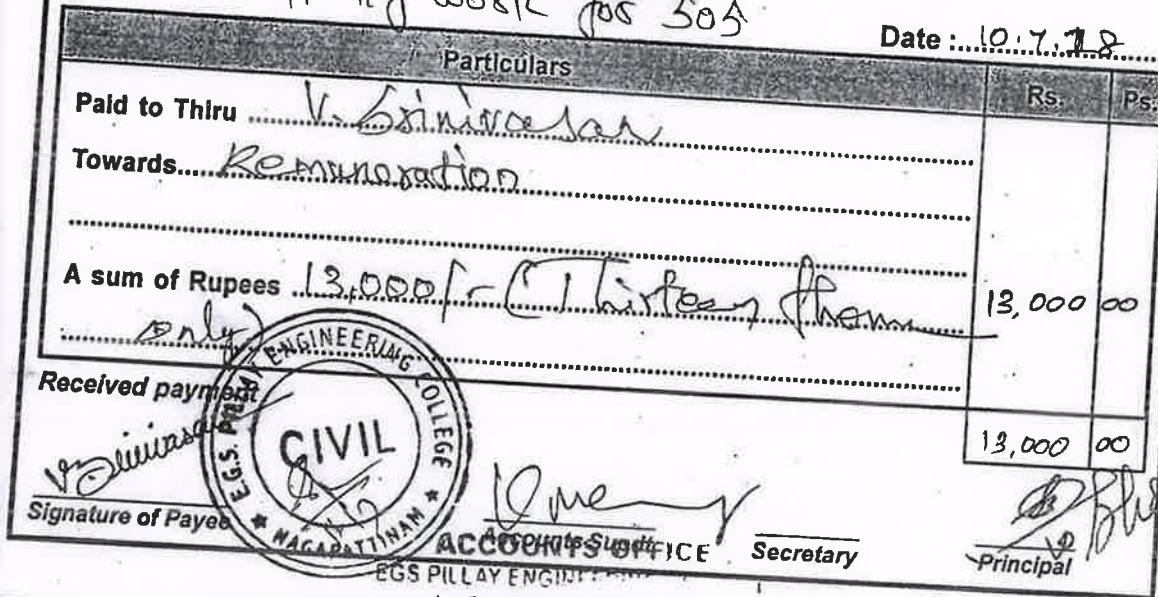 work for 505
Date : 10.7.18
Particulars Rs. Ps.
Paid to Thiru V. Srinivasan
Towards Remuneration
A sum of Rupees 13,000/- (Thirteen thous 13,000 00
only)
Received payment
13,000 00
V. Srinivasan
Signature of Payee
E.G.S. PILLAY ENGINEERING COLLEGE
CIVIL
NAGAPATTINAM
Accounts Supdt.
ACCOUNTS OFFICE
Secretary
Principal
EGS PILLAY